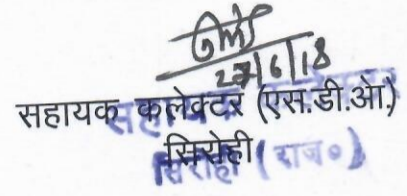 27/6/18
सहायक कलेक्टर (एस.डी.ओ.)
सिरोही
सिरोही (राज०)